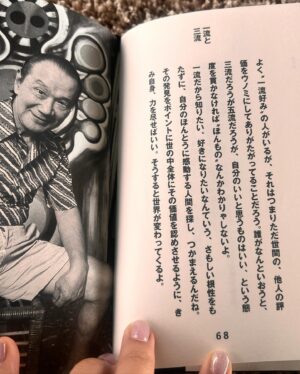 一流と
三流
よく、"一流好み"の人がいるが、それはつまりただ世間の、他人の評
価をウノミにしてありがたがってることだろう。誰がなんといおうと、
三流だろうが五流だろうが、自分のいいと思うものはいい、という態
度を貫かなければ"ほんもの"なんかわかりゃしないよ。
一流だから知りたい、好きになりたいなんていう、さもしい根性をも
たずに、自分のほんとうに感動する人間を探し、つかまえるんだね。
その発見をポイントに世の中全体にその価値を認めさせるように、き
み自身、力を尽せばいい。そうすると世界が変わってくるよ。
68